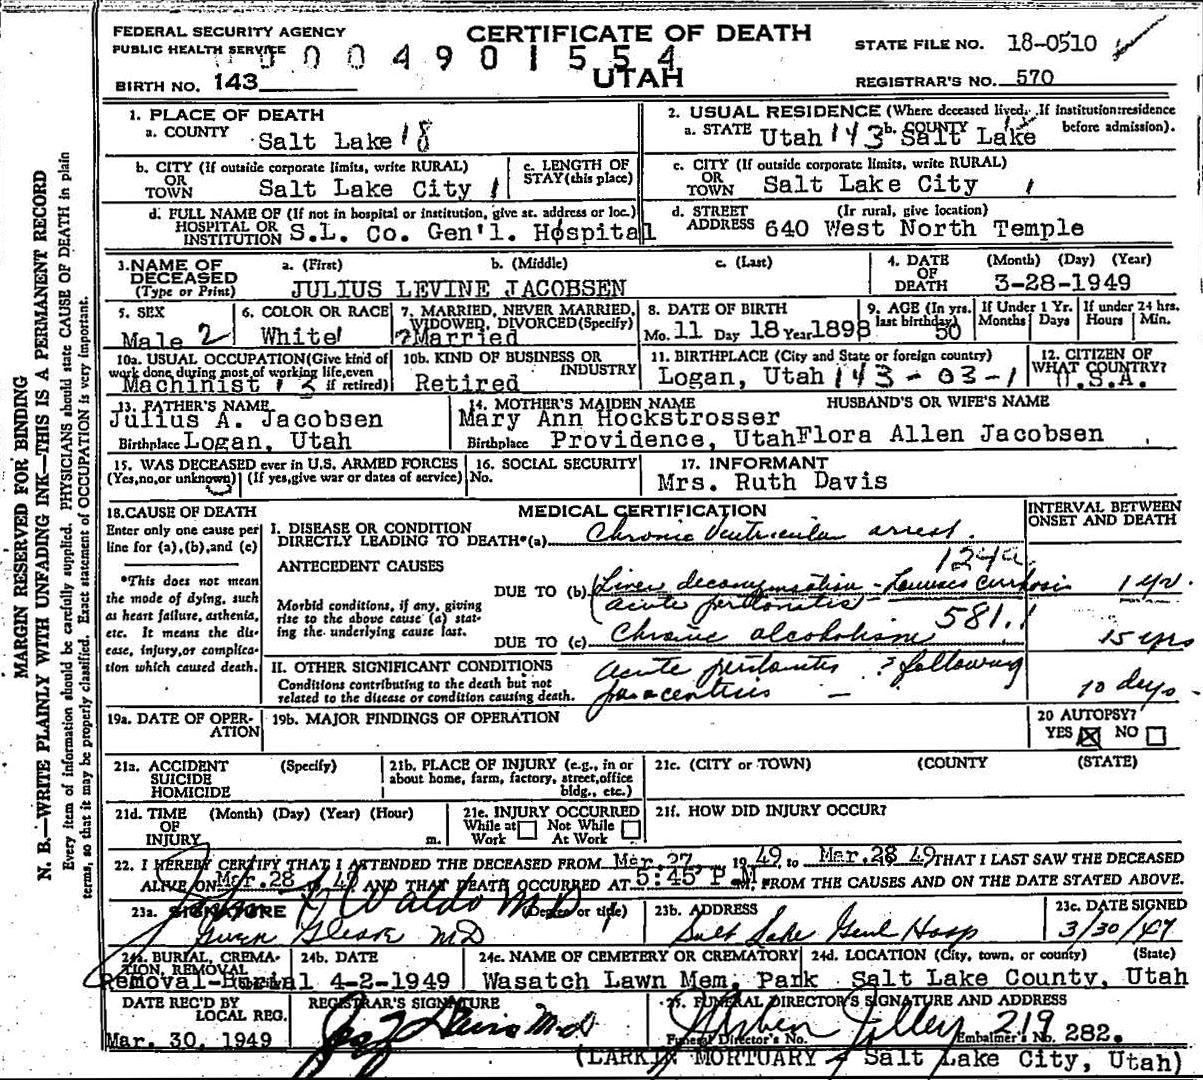 FEDERAL SECURITY AGENCY
PUBLIC HEALTH SERVICE
CERTIFICATE OF DEATH
UTAH
0004901554
STATE FILE NO. 18-0510
BIRTH NO. 143
REGISTRAR'S NO. 570
1. PLACE OF DEATH
a. COUNTY
Salt Lake 18
2. USUAL RESIDENCE (Where deceased lived. If institution: residence before admission).
a. STATE Utah 143 b. COUNTY Salt Lake
b. CITY (If outside corporate limits, write RURAL)
OR
TOWN Salt Lake City 1
c. LENGTH OF
STAY (this place)
c. CITY (If outside corporate limits, write RURAL)
OR
TOWN Salt Lake City 1
d. FULL NAME OF (If not in hospital or institution, give st. address or loc.)
HOSPITAL OR
INSTITUTION S.L. Co. Gen'l. Hospital
d. STREET (Ir rural, give location)
ADDRESS 640 West North Temple
3. NAME OF
DECEASED
(Type or Print)
a. (First) b. (Middle) c. (Last)
JULIUS LEVINE JACOBSEN
4. DATE
OF
DEATH
(Month) (Day) (Year)
3-28-1949
5. SEX
Male 2
6. COLOR OR RACE
White 1
7. MARRIED, NEVER MARRIED,
WIDOWED, DIVORCED (Specify)
2 Married
8. DATE OF BIRTH
Mo. 11 Day 18 Year 1898
9. AGE (In yrs.
last birthday)
50
If Under 1 Yr.
Months Days
If under 24 hrs.
Hours Min.
10a. USUAL OCCUPATION (Give kind of
work done during most of working life, even
if retired)
Machinist
10b. KIND OF BUSINESS OR
INDUSTRY
Retired
11. BIRTHPLACE (City and State or foreign country)
Logan, Utah 143-03-1
12. CITIZEN OF
WHAT COUNTRY?
U.S.A.
13. FATHER'S NAME
Julius A. Jacobsen
Birthplace Logan, Utah
14. MOTHER'S MAIDEN NAME
Mary Ann Hockstrosser
Birthplace Providence, Utah
HUSBAND'S OR WIFE'S NAME
Flora Allen Jacobsen
15. WAS DECEASED ever in U.S. ARMED FORCES
(Yes, no, or unknown) (If yes, give war or dates of service)
16. SOCIAL SECURITY
No.
17. INFORMANT
Mrs. Ruth Davis
18. CAUSE OF DEATH
Enter only one cause per
line for (a), (b), and (c)
*This does not mean
the mode of dying, such
as heart failure, asthenia,
etc. It means the dis-
ease, injury, or complica-
tion which caused death.
MEDICAL CERTIFICATION
INTERVAL BETWEEN
ONSET AND DEATH
I. DISEASE OR CONDITION
DIRECTLY LEADING TO DEATH*(a) Chronic Ventricular arrest.
124a
ANTECEDENT CAUSES
Morbid conditions, if any, giving
rise to the above cause (a) stat-
ing the underlying cause last.
DUE TO (b) Liver decompensation - Laennecs cirrhosis 1 yr.
acute peritonitis
581.1
DUE TO (c) Chronic alcoholism 15 yrs
II. OTHER SIGNIFICANT CONDITIONS
Conditions contributing to the death but not
related to the disease or condition causing death.
acute peritonitis ? following
paracentesis - 10 days -
19a. DATE OF OPER-
ATION
19b. MAJOR FINDINGS OF OPERATION
20 AUTOPSY?
YES NO
21a. ACCIDENT
SUICIDE
HOMICIDE
(Specify)
21b. PLACE OF INJURY (e.g., in or
about home, farm, factory, street, office
bldg., etc.)
21c. (CITY or TOWN) (COUNTY) (STATE)
21d. TIME
OF
INJURY
(Month) (Day) (Year) (Hour)
m.
21e. INJURY OCCURRED
While at
Work
Not While
At Work
21f. HOW DID INJURY OCCUR?
22. I HEREBY CERTIFY THAT I ATTENDED THE DECEASED FROM Mar. 27, 1949 to Mar. 28 49 THAT I LAST SAW THE DECEASED
ALIVE ON Mar. 28 1949 AND THAT DEATH OCCURRED AT 5:45 P.M. FROM THE CAUSES AND ON THE DATE STATED ABOVE.
23a. SIGNATURE (Degree or title)
Waldo MD
MD
23b. ADDRESS
Salt Lake Genl Hosp
23c. DATE SIGNED
3/30/49
24a. BURIAL, CREMA-
TION, REMOVAL
Removal-Burial
24b. DATE
4-2-1949
24c. NAME OF CEMETERY OR CREMATORY
Wasatch Lawn Mem. Park
24d. LOCATION (City, town, or county) (State)
Salt Lake County, Utah
DATE REC'D BY
LOCAL REG.
Mar. 30, 1949
REGISTRAR'S SIGNATURE
25. FUNERAL DIRECTOR'S SIGNATURE AND ADDRESS
Funeral Director's No. 219 Embalmer's No. 282.
(LARKIN MORTUARY - Salt Lake City, Utah)
MARGIN RESERVED FOR BINDING
N. B.—WRITE PLAINLY WITH UNFADING INK—THIS IS A PERMANENT RECORD
Every item of information should be carefully supplied. PHYSICIANS should state CAUSE OF DEATH in plain
terms, so that it may be properly classified. Exact statement of OCCUPATION is very important.